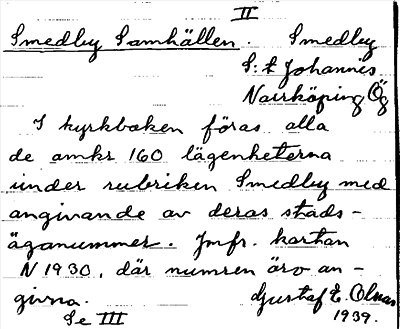 II
Smedby Samhällen. Smedby
S:t Johannis
Norrköping Ög
I kyrkboken föras alla
de omkr 160 lägenheterna
under rubriken Smedby med
angivande av deras stads-
äganummer. Jmfr. kartan
N 1930, där numren äro an-
givna.
Gustaf E. Olnas
Se III
1939.